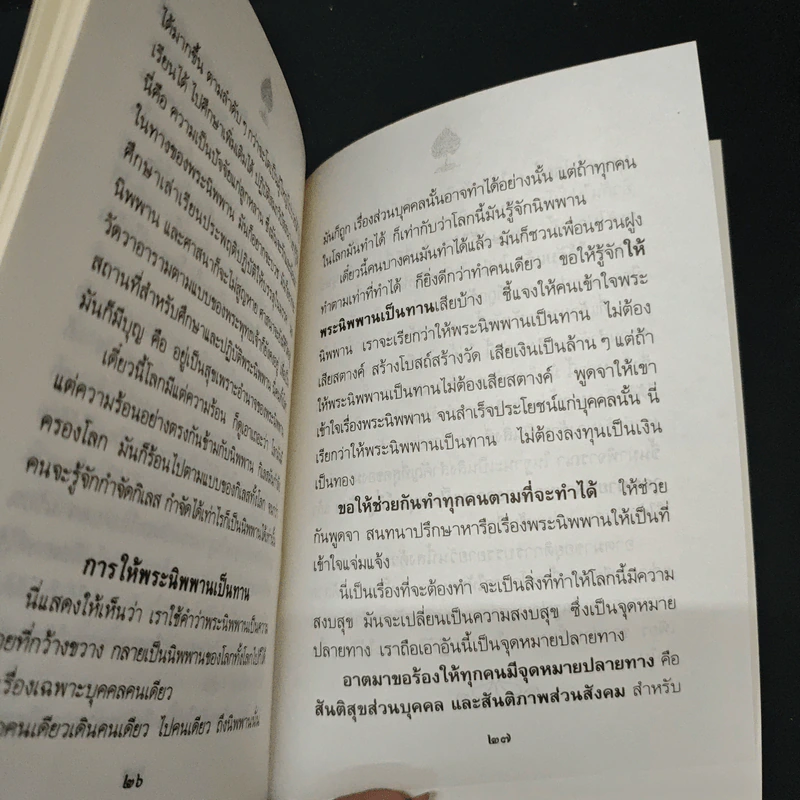 ได้มากขึ้น ตามลำดับ ๆ กว่าจะ
เรียนได้ ไปศึกษาเพิ่มเติมได้
นี่คือ ความเป็นปัจจัยแก่ลูกหลาน
ในทางของพระนิพพาน มันก็
ศึกษาเล่าเรียนประพฤติปฏิบัติ
นิพพาน และศาสนาก็จะไม่สูญหาย
วัดวาอารามตามแบบของพระพุทธเจ้าก็ยังคงอยู่
สถานที่สำหรับศึกษาและปฏิบัติพระนิพพาน
มันก็มีบุญ คือ อยู่เป็นสุขเพราะอำนาจของพระนิพพาน
เดี๋ยวนี้โลกมีแต่ความร้อน ก็ดูเอาเถอะว่า
แต่ความร้อนอย่างตรงกันข้ามกับนิพพาน
ครองโลก มันก็ร้อนไปตามแบบของกิเลสทั้งโลก
คนจะรู้จักกำจัดกิเลส กำจัดได้เท่าไรก็เป็นนิพพานได้เท่านั้น
การให้พระนิพพานเป็นทาน
นี่แสดงให้เห็นว่า เราใช้คำว่าพระนิพพานเป็นความ
ายที่กว้างขวาง กลายเป็นนิพพานของโลกทั้งโลกไปก็ได้
รื่องเฉพาะบุคคลคนเดียว
คนเดียวเดินคนเดียว ไปคนเดียว ถึงนิพพานนั้น
๒๖
มันก็ถูก เรื่องส่วนบุคคลนั้นอาจทำได้อย่างนั้น แต่ถ้าทุกคน
ในโลกมันทำได้ ก็เท่ากับว่าโลกนี้มันรู้จักนิพพาน
เดี๋ยวนี้คนบางคนมันทำได้แล้ว มันก็ชวนเพื่อนชวนฝูง
ทำตามเท่าที่ทำได้ ก็ยิ่งดีกว่าทำคนเดียว ขอให้รู้จักให้
พระนิพพานเป็นทานเสียบ้าง ชี้แจงให้คนเข้าใจพระ
นิพพาน เราจะเรียกว่าให้พระนิพพานเป็นทาน ไม่ต้อง
เสียสตางค์ สร้างโบสถ์สร้างวัด เสียเงินเป็นล้าน ๆ แต่ถ้า
ให้พระนิพพานเป็นทานไม่ต้องเสียสตางค์ พูดจาให้เขา
เข้าใจเรื่องพระนิพพาน จนสำเร็จประโยชน์แก่บุคคลนั้น นี่
เรียกว่าให้พระนิพพานเป็นทาน ไม่ต้องลงทุนเป็นเงิน
เป็นทอง
ขอให้ช่วยกันทำทุกคนตามที่จะทำได้ ให้ช่วย
กันพูดจา สนทนาปรึกษาหารือเรื่องพระนิพพานให้เป็นที่
เข้าใจแจ่มแจ้ง
นี่เป็นเรื่องที่จะต้องทำ จะเป็นสิ่งที่ทำให้โลกนี้มีความ
สงบสุข มันจะเปลี่ยนเป็นความสงบสุข ซึ่งเป็นจุดหมาย
ปลายทาง เราถือเอาอันนี้เป็นจุดหมายปลายทาง
อาตมาขอร้องให้ทุกคนมีจุดหมายปลายทาง คือ
สันติสุขส่วนบุคคล และสันติภาพส่วนสังคม สำหรับ
๒๗